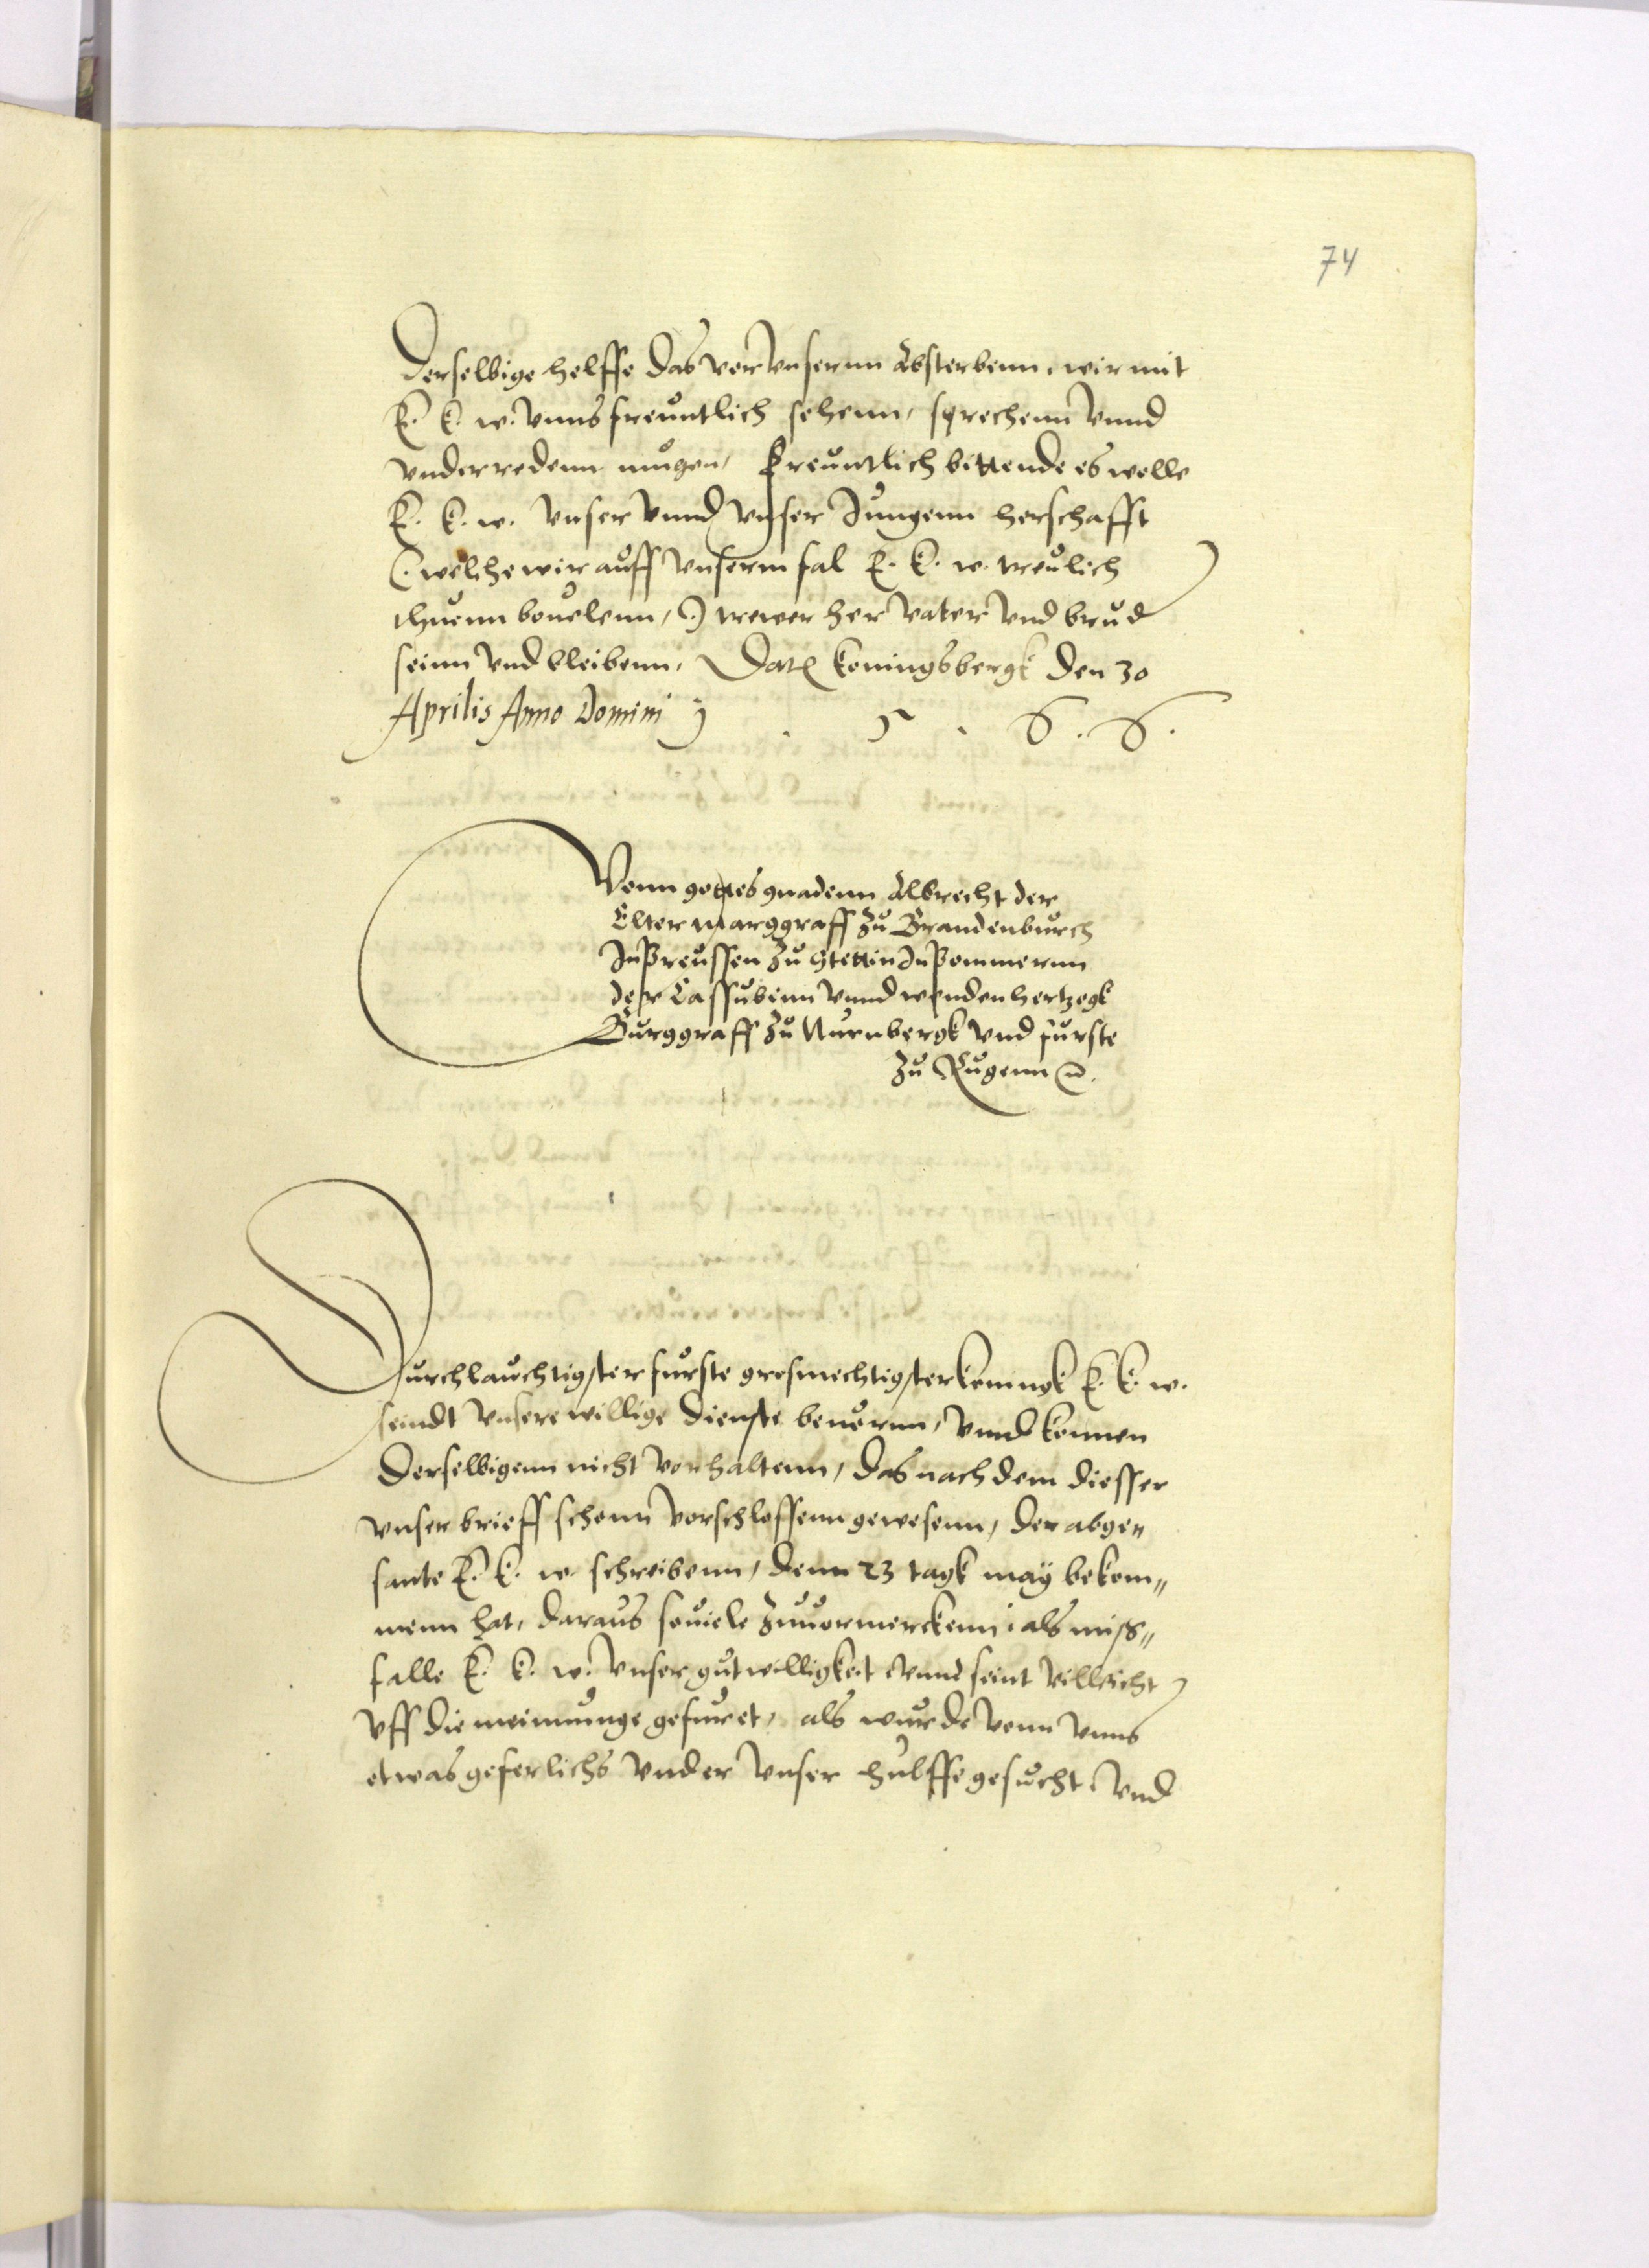 74
Derselbige helffe das vor vnsernn Absterbenn, wir mit
E. k. w. vnns freuntlich sehenn, sprechenn vnnd
vnderredenn mugen, Freuntlich bittende es wolle
E. k. w. vnser vnnd vnser Jungenn herschafft
(: welche wir auff vnserm fal E. k. w. treulich
thuenn beuelenn, :) trewer her vater vnd brud
seinn vnd bleibenn, Dat Koningsbergk den 30
Aprilis Anno Domini j . 5 . 6 . 6 .
Vonn gottes gnadenn Albrecht der
Elter Marggraff zu Brandenburch
In Preussen zu Stettin In Pommernn
der Cassubenn vnnd wenden hertzogk
Burggraff zu Nurnbergk vnd furste
zu Rugenn
Durchlauchtigster furste grosmechtigster koningk E. k. w.
seindt vnsere willige dienste beuornn, vnnd konnen
Derselbigenn nicht vorhaltenn, das nach dem diesser
vnser brieff schonn vorschlossenn gewesenn, der abge„
sante E. k. w. schreibenn, denn 23 tagk may bekom„
menn hat, daraus souiele zuuormerckenn, als miss„
falle E. k. w. vnser gutwilligkeit vnnd seint villeicht
vff die meinunge gefuret, als wurde vonn vnns
etwas geferlichs vnder vnser hulffe gesucht, vnd